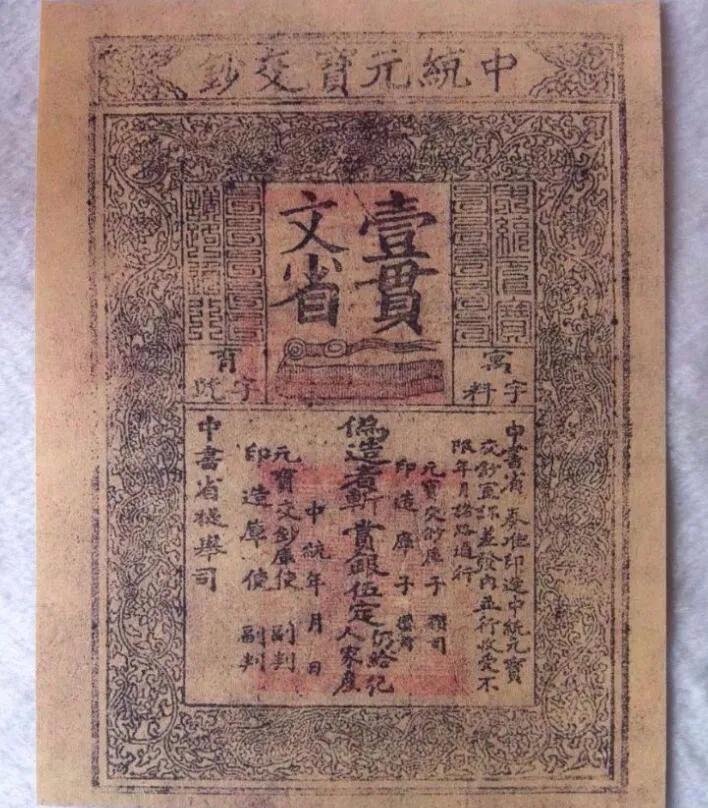 中統元寶交鈔
壹貫
文省
中統元寶
諸路通行
字料
字號
中書省 奏准印造中統元寶
交鈔宣課差發內並行收受不
限年月諸路通行
元寶交鈔庫子 攢司
印造庫子 攢司
偽造者斬賞銀伍定
仍給犯
人家產
中統年月日
元寶交鈔庫使 副判
印造庫使 副判
中書省提舉司